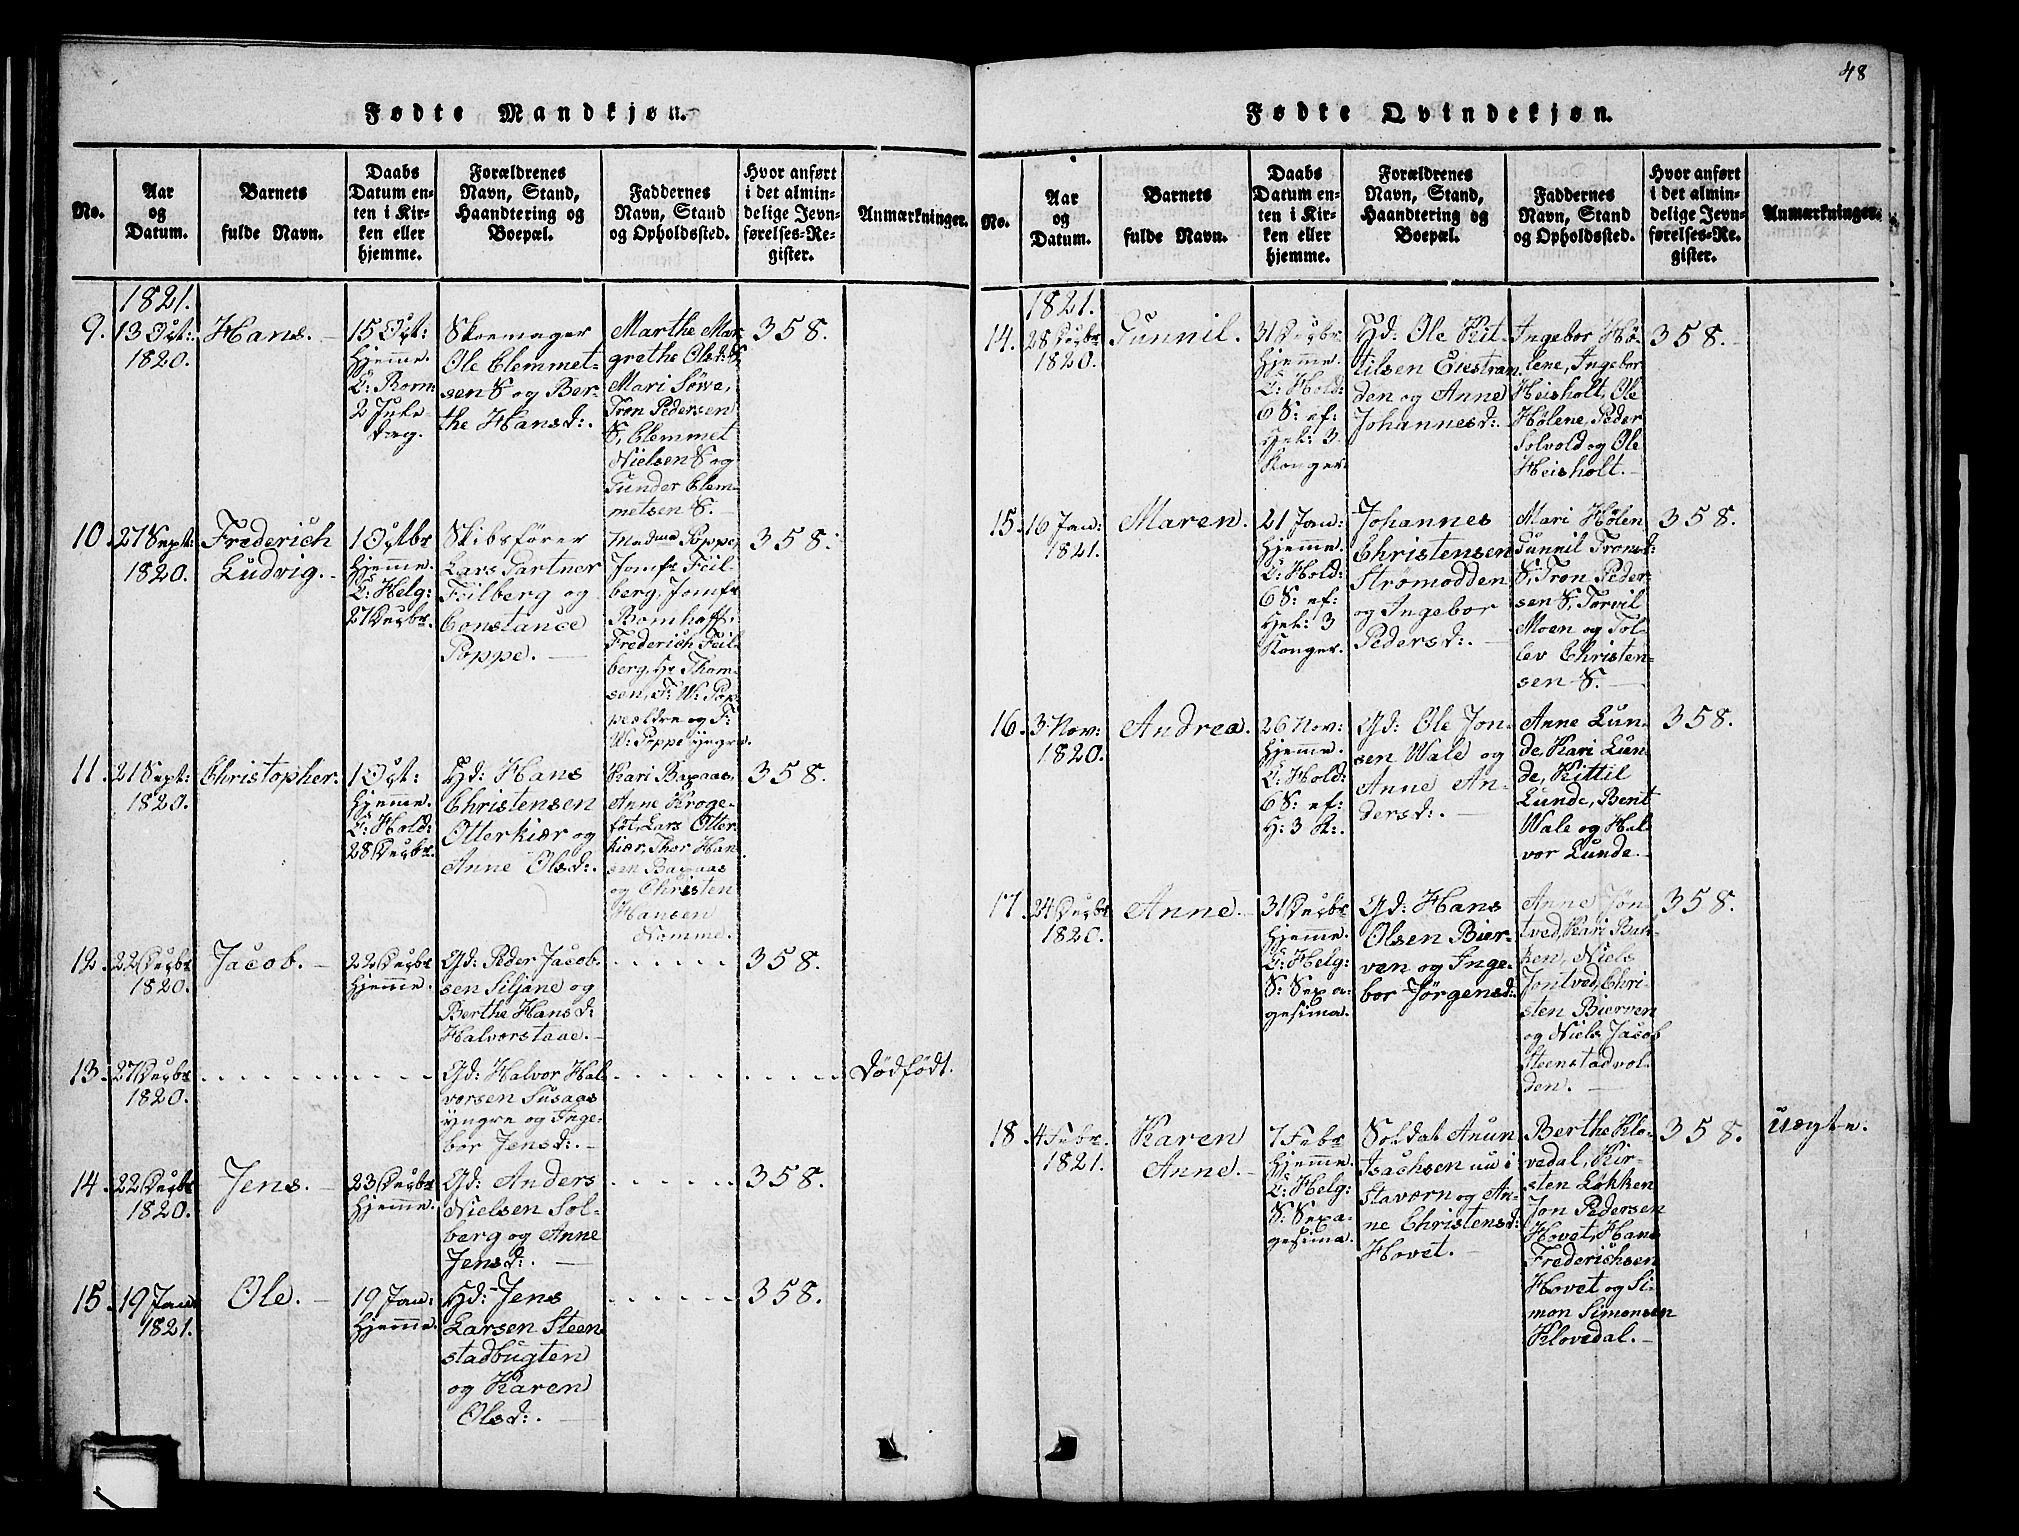 48
Fødte Mandkjøn.
No.
Aar
og
Datum.
Barnets
fulde Navn.
Daabs
Datum en-
ten i Kir-
ken eller
hjemme.
Forældrenes
Navn, Stand,
Haandtering og
Boepæl.
Faddernes
Navn, Stand
og Opholdssted.
Hvor anført
i det almin-
delige Jevn-
førelses-Re-
gister.
Anmærkninger.
1821.
9.
13 Oct:
1820.
Hans.
15 Oct:
hjemme.
2 Jule
dag.
Skoemager
Ole Clemmet-
sen S og Ber-
the Hansd:.
Marthe Mar-
grethe Olsd: S,
Mari Søwe,
Tron Pedersen
S, Clemmet
Nielsen S og
Gunder Clem-
metsen S.
358.
10.
27 Sept:
1820.
Frederich
Ludvig.
1 Octbr
hjemme.
C: Helg:
27 Decbr.
Skibsfører
Lars Partner
Feilberg og
Constance
Poppe.
Madme Poppe,
Jomfr Feil-
berg, Jomfr
Bomhoff,
Frederich Feil-
berg, Hr Thom-
sen, F: W: Pop-
pe ældre og F:
W: Poppe yngre.
358.
11.
21 Sept:
1820.
Christopher.
1 Oct:
hjemme.
C: Hold:
28 Decbr.
Hd: Hans
Christensen
Otterkiær og
Anne Olsd:.
Kari Baxaas,
Anne Kroge-
fot, Lars Otter-
kiær, Thor Han-
sen Baxaas
og Christen
Hansen
Nomme.
358.
12.
22 Decbr
1820.
Jacob.
22 Decbr
hjemme.
Gd: Peder Jacob-
sen Siljane og
Berthe Hansd:
Halvorstaae.
358.
13.
27 Decbr
1820.
Gd: Halvor Hal-
vorsen Susaas
yngre og Inge-
bor Jensd:.
Dödfödt.
14.
22 Decbr
1820.
Jens.
23 Decbr
hjemme.
Gd: Anders
Nielsen Sol-
berg og Anne
Jensd:.
358.
15.
19 Jan:
1821.
Ole.
19 Jan:
hjemme.
Hd: Jens
Larsen Steen-
stadbugten
og Karen
Olsd:.
358.
Fødte Qvindekjøn.
No.
Aar
og
Datum.
Barnets
fulde Navn.
Daabs
Datum en-
ten i Kir-
ken eller
hjemme.
Forældrenes
Navn, Stand,
Haandtering og
Boepæl.
Faddernes
Navn, Stand
og Opholdssted.
Hvor anført
i det almin-
delige Jevn-
førelses-Re-
gister.
Anmærkninger.
1821.
14.
28 Decbr
1820.
Gunnil.
31 Decbr
hjemme.
C: Hold:
6 S: ef:
Hel: 3
Konger.
Hd: Ole Kit-
tilsen Eiestran-
den og Anne
Johannesd:.
Ingebor Hö-
lene, Ingebor
Heisholt, Ole
Hølene, Peder
Solvold og Ole
Heisholt.
358.
15.
16 Jan:
1821.
Maren.
21 Jan:
hjemme.
C: Hold:
6 S: ef:
Hel: 3
Konger.
Johannes
Christensen
Strømodden
og Ingebor
Pedersd:.
Mari Hölen
Gunnil Tronsd:
S, Tron Peder-
sen S, Torvil
Moen og Tol-
lev Christen-
sen S.
358.
16.
3 Nov:
1820.
Andrea.
26 Nov:
hjemme.
C: Hold:
6 S: ef:
H: 3 K:.
Gd: Ole Jon-
sen Wale og
Anne An-
dersd:.
Anne Lun-
de, Kari Lun-
de, Kittil
Lunde, Bent
Wale og Hal-
vor Lunde.
358.
17.
24 Decbr
1820.
Anne.
31 Decbr
hjemme.
C: Helg:
S: Sexa-
gesima.
Gd: Hans
Olsen Bier-
ven og Inge-
bor Jörgensd:
Anne Jön-
tved, Kari
Niels
Jontved, Chri-
sten Bierven
og Niels Jacob
Steenstadvol-
den.
358.
18.
4 Febr.
1821.
Karen
Anne.
7 Febr
hjemme.
C: Helg:
S: Sexa-
gesima.
Soldat Anun
Isachsen nu i
Staværn og An-
ne Christensd:
Hovet.
Berthe Klo-
vedal, Kir-
sten Løkken
Jon Pedersen
Hovet, Hans
Frederichsen
Hovet og Si-
mon Simonsen
Klovedal.
358.
Uægte.